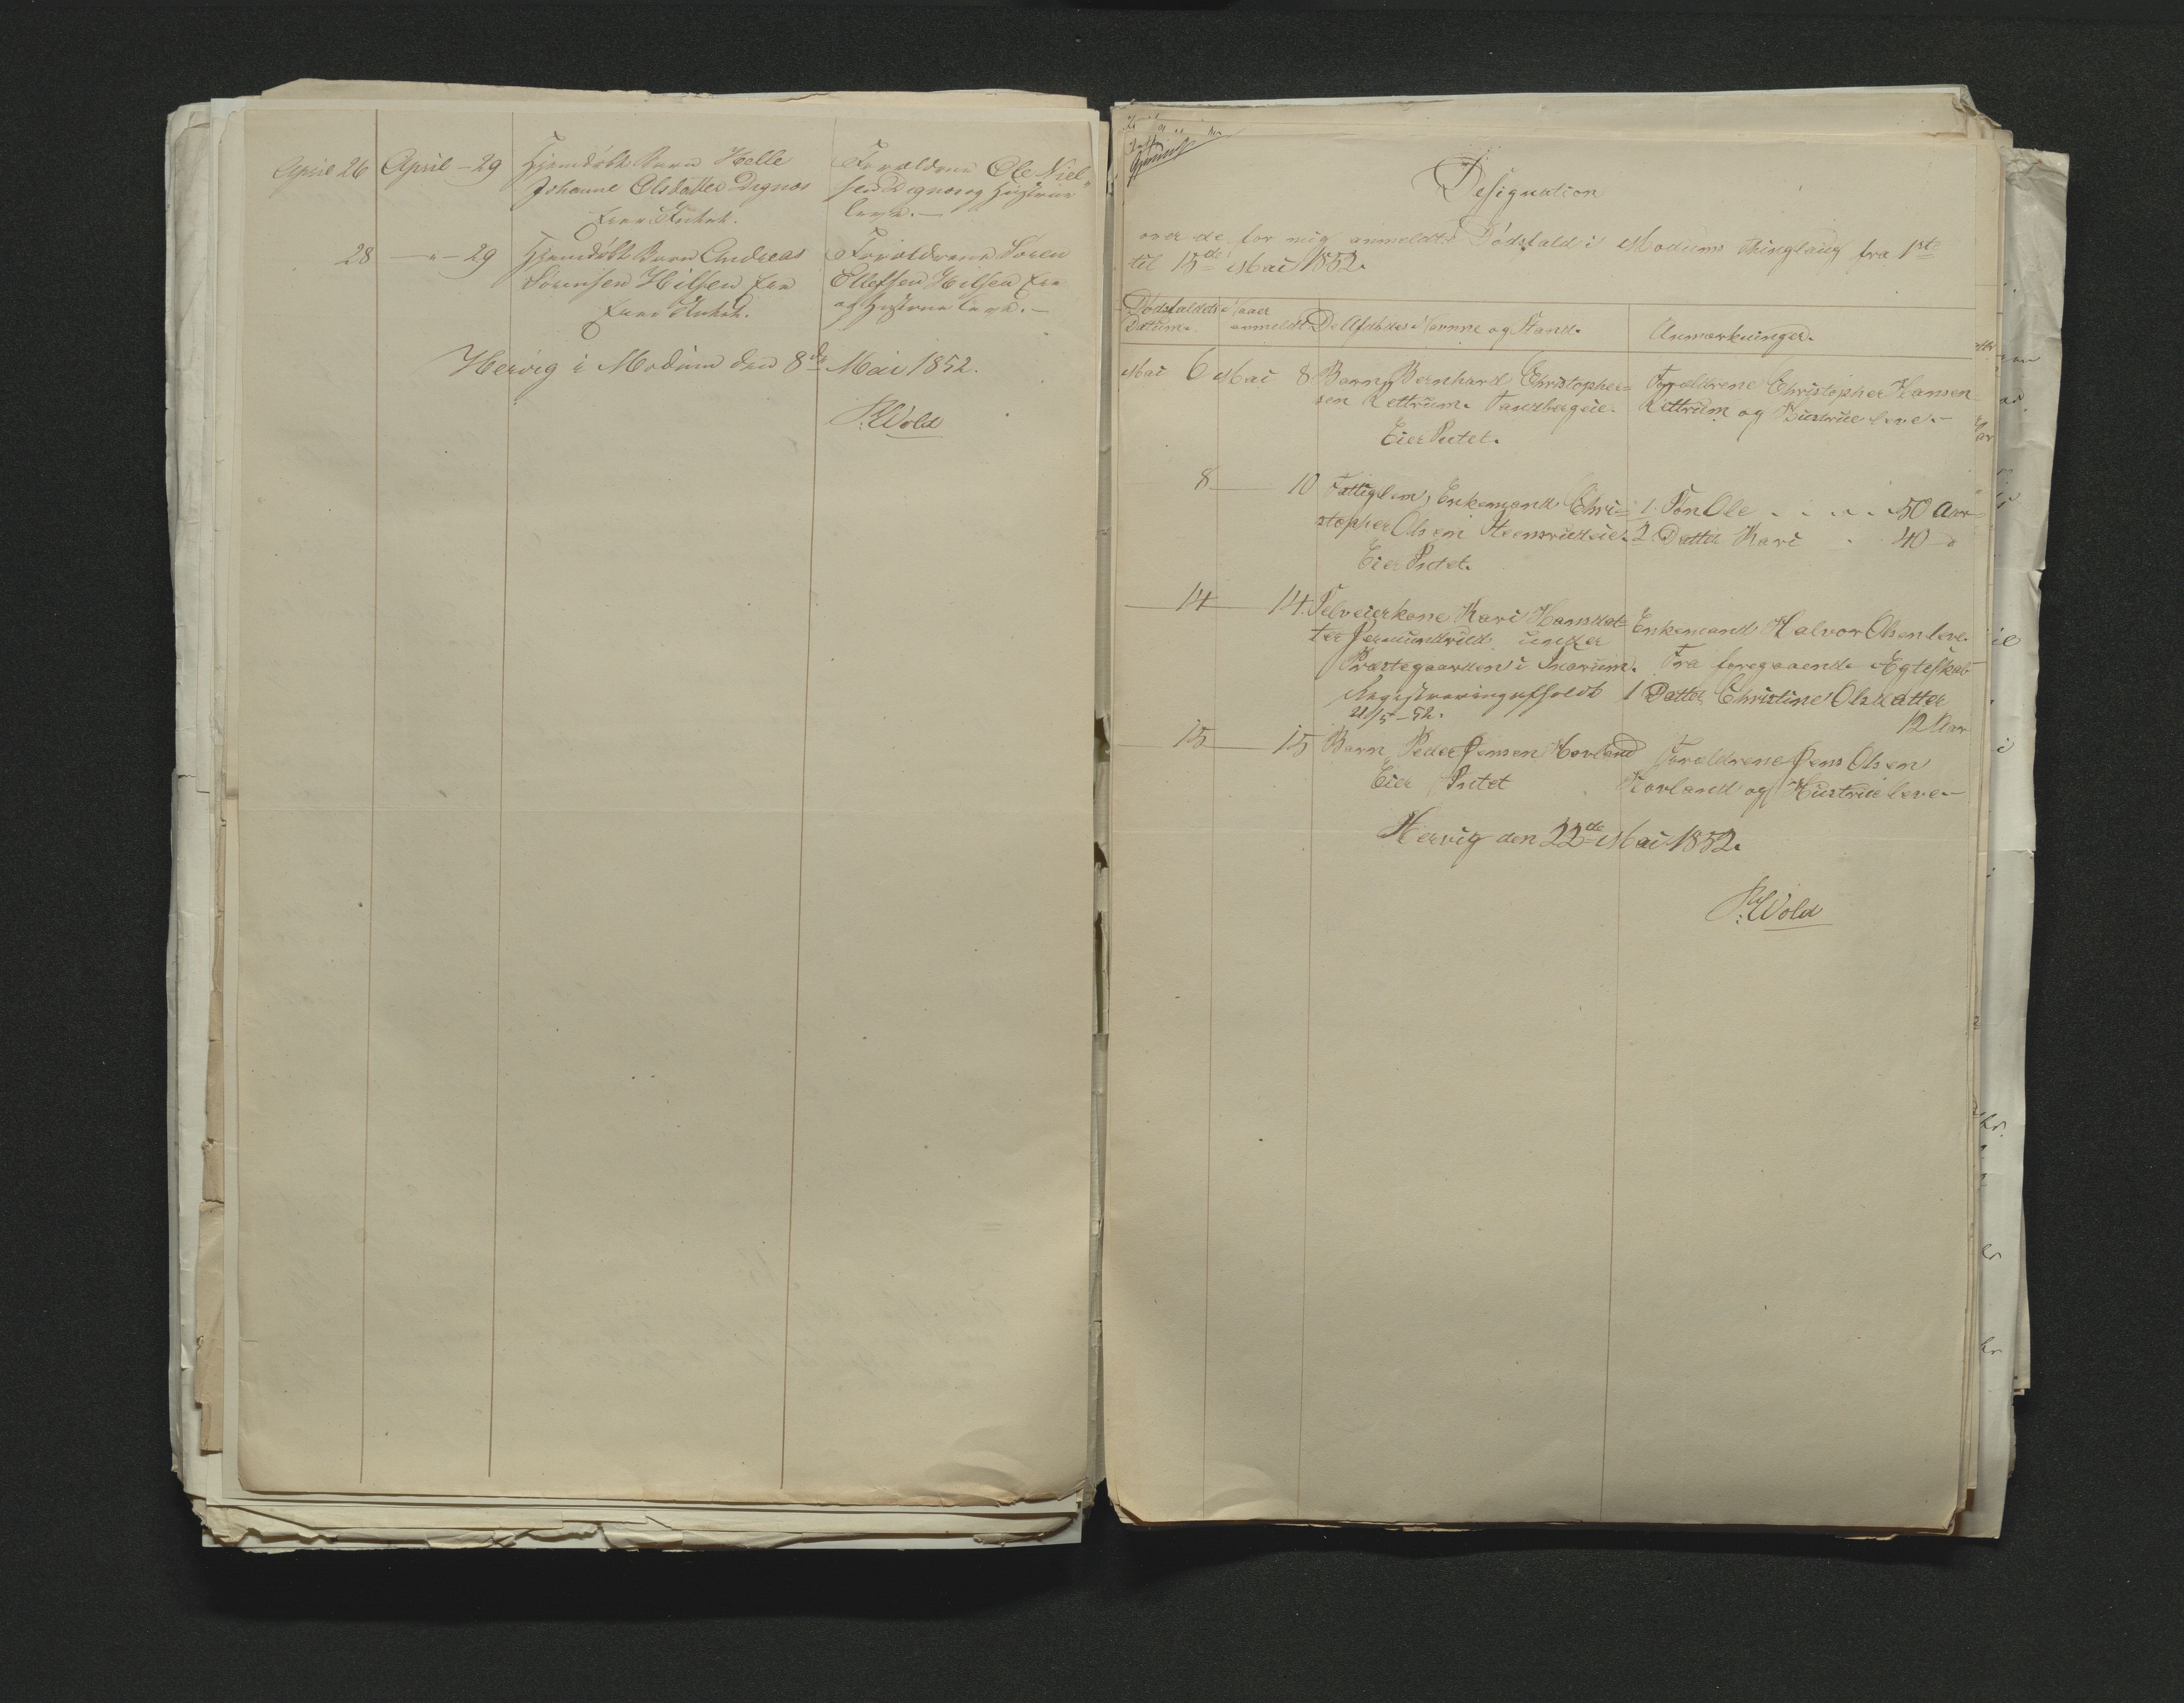 April 26 April - 29 Hjemdøbt Barn Helle
Johanne Olsdatter Dignæs
Eier Intet.
Forældrene Ole Niel-
sen Dignæs og Hustrue
leve. —
28 — " — 29 Hjemdøbt Barn Andreas
Sørensen Hilsen Eie
Eier Intet.
Forældrene Søren
Ellefsen Hilsen Eie
og Hustrue leve. —
Hervig i Modum den 8de Mai 1852.
P. Wold
Designation
over de for mig anmeldte Dødsfald i Modums Thinglaug fra 1ste
til 15de Mai 1852.
Dødsfaldets Datum.
Naar anmeldt
De Afdødes Navne og Stand.
Anmærkninger.
Mai 6 Mai 8 Barn Bernhard Christopher=
sen Rettrum. Tandbergeie.
Eier Intet.
Forældrene Christopher Hansen
Rettrum og Hustrue leve. —
8 — 10 Fattiglem, Enkemand Chri=
stopher Olsen Steensrudeie.
Eier Intet.
1. Søn Ole . . . . . 50 Aar
2. Datter Kari . 40 "
14 — 14. Selveierkone Kari Hansdat=
ter under
Præstegaarden i Snarum.
Registrering afholdt
21/5 - 52.
Enkemand Halvor Olsen leve.
Fra foregaaende Egteskab
1 Datter Christine Olsdatter
12 Aar
15 — 15 Barn Peder Jensen Hovland
Eier Intet
Forældrene Jens Olsen
Hovland og Hustrue leve. —
Hervig den 22de Mai 1852.
P. Wold